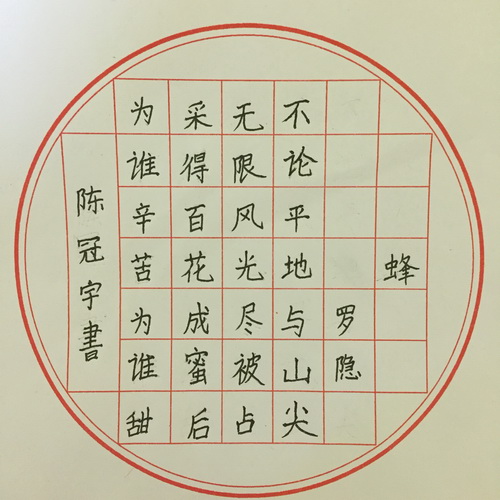 蜂
罗隐
不论平地与山尖
无限风光尽被占
采得百花成蜜后
为谁辛苦为谁甜
陈冠宇書